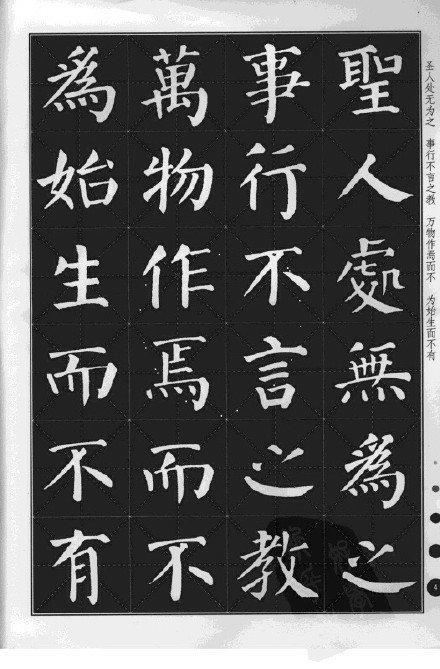 聖人處無為之
事行不言之教
萬物作焉而不
為始生而不有
圣人处无为之 事行不言之教 万物作焉而不 为始生而不有